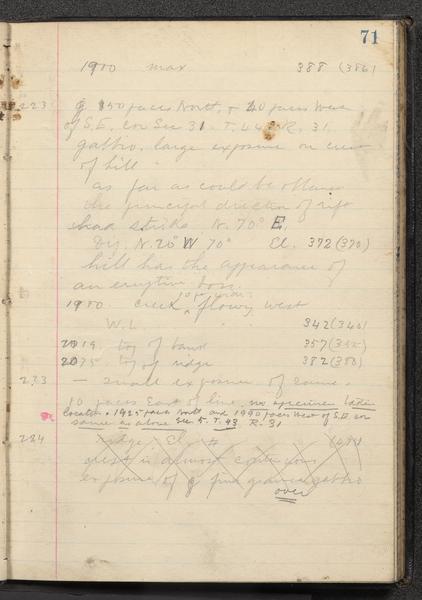 71
1900 max 388 (386)
223 150 paces North, + 40 paces West
of S.E. Cor Sec 31 T. 44 R. 31.
gabbro, large exposure on crest
of hill
as far as could be obtained
the principal direction of rift
had strike N. 70° E.
Dip. N. 20° W 70° El. 372 (370)
hill has the appearance of
an eruptive boss.
10 paces wide
1900. Creek, flows West
W.L. 342 (340)
2019. top of bank 357 (355)
2075. top of ridge 382 (380)
233 — small exposure of same.
10 paces East of line, no specimen taken
Location 1925 paces North and 1990 paces West of S.E. cor
same as above Sec 5. T. 43 R. 31
234 ridge El
crest is almost continuous
exposure of fine grained gabbro
over